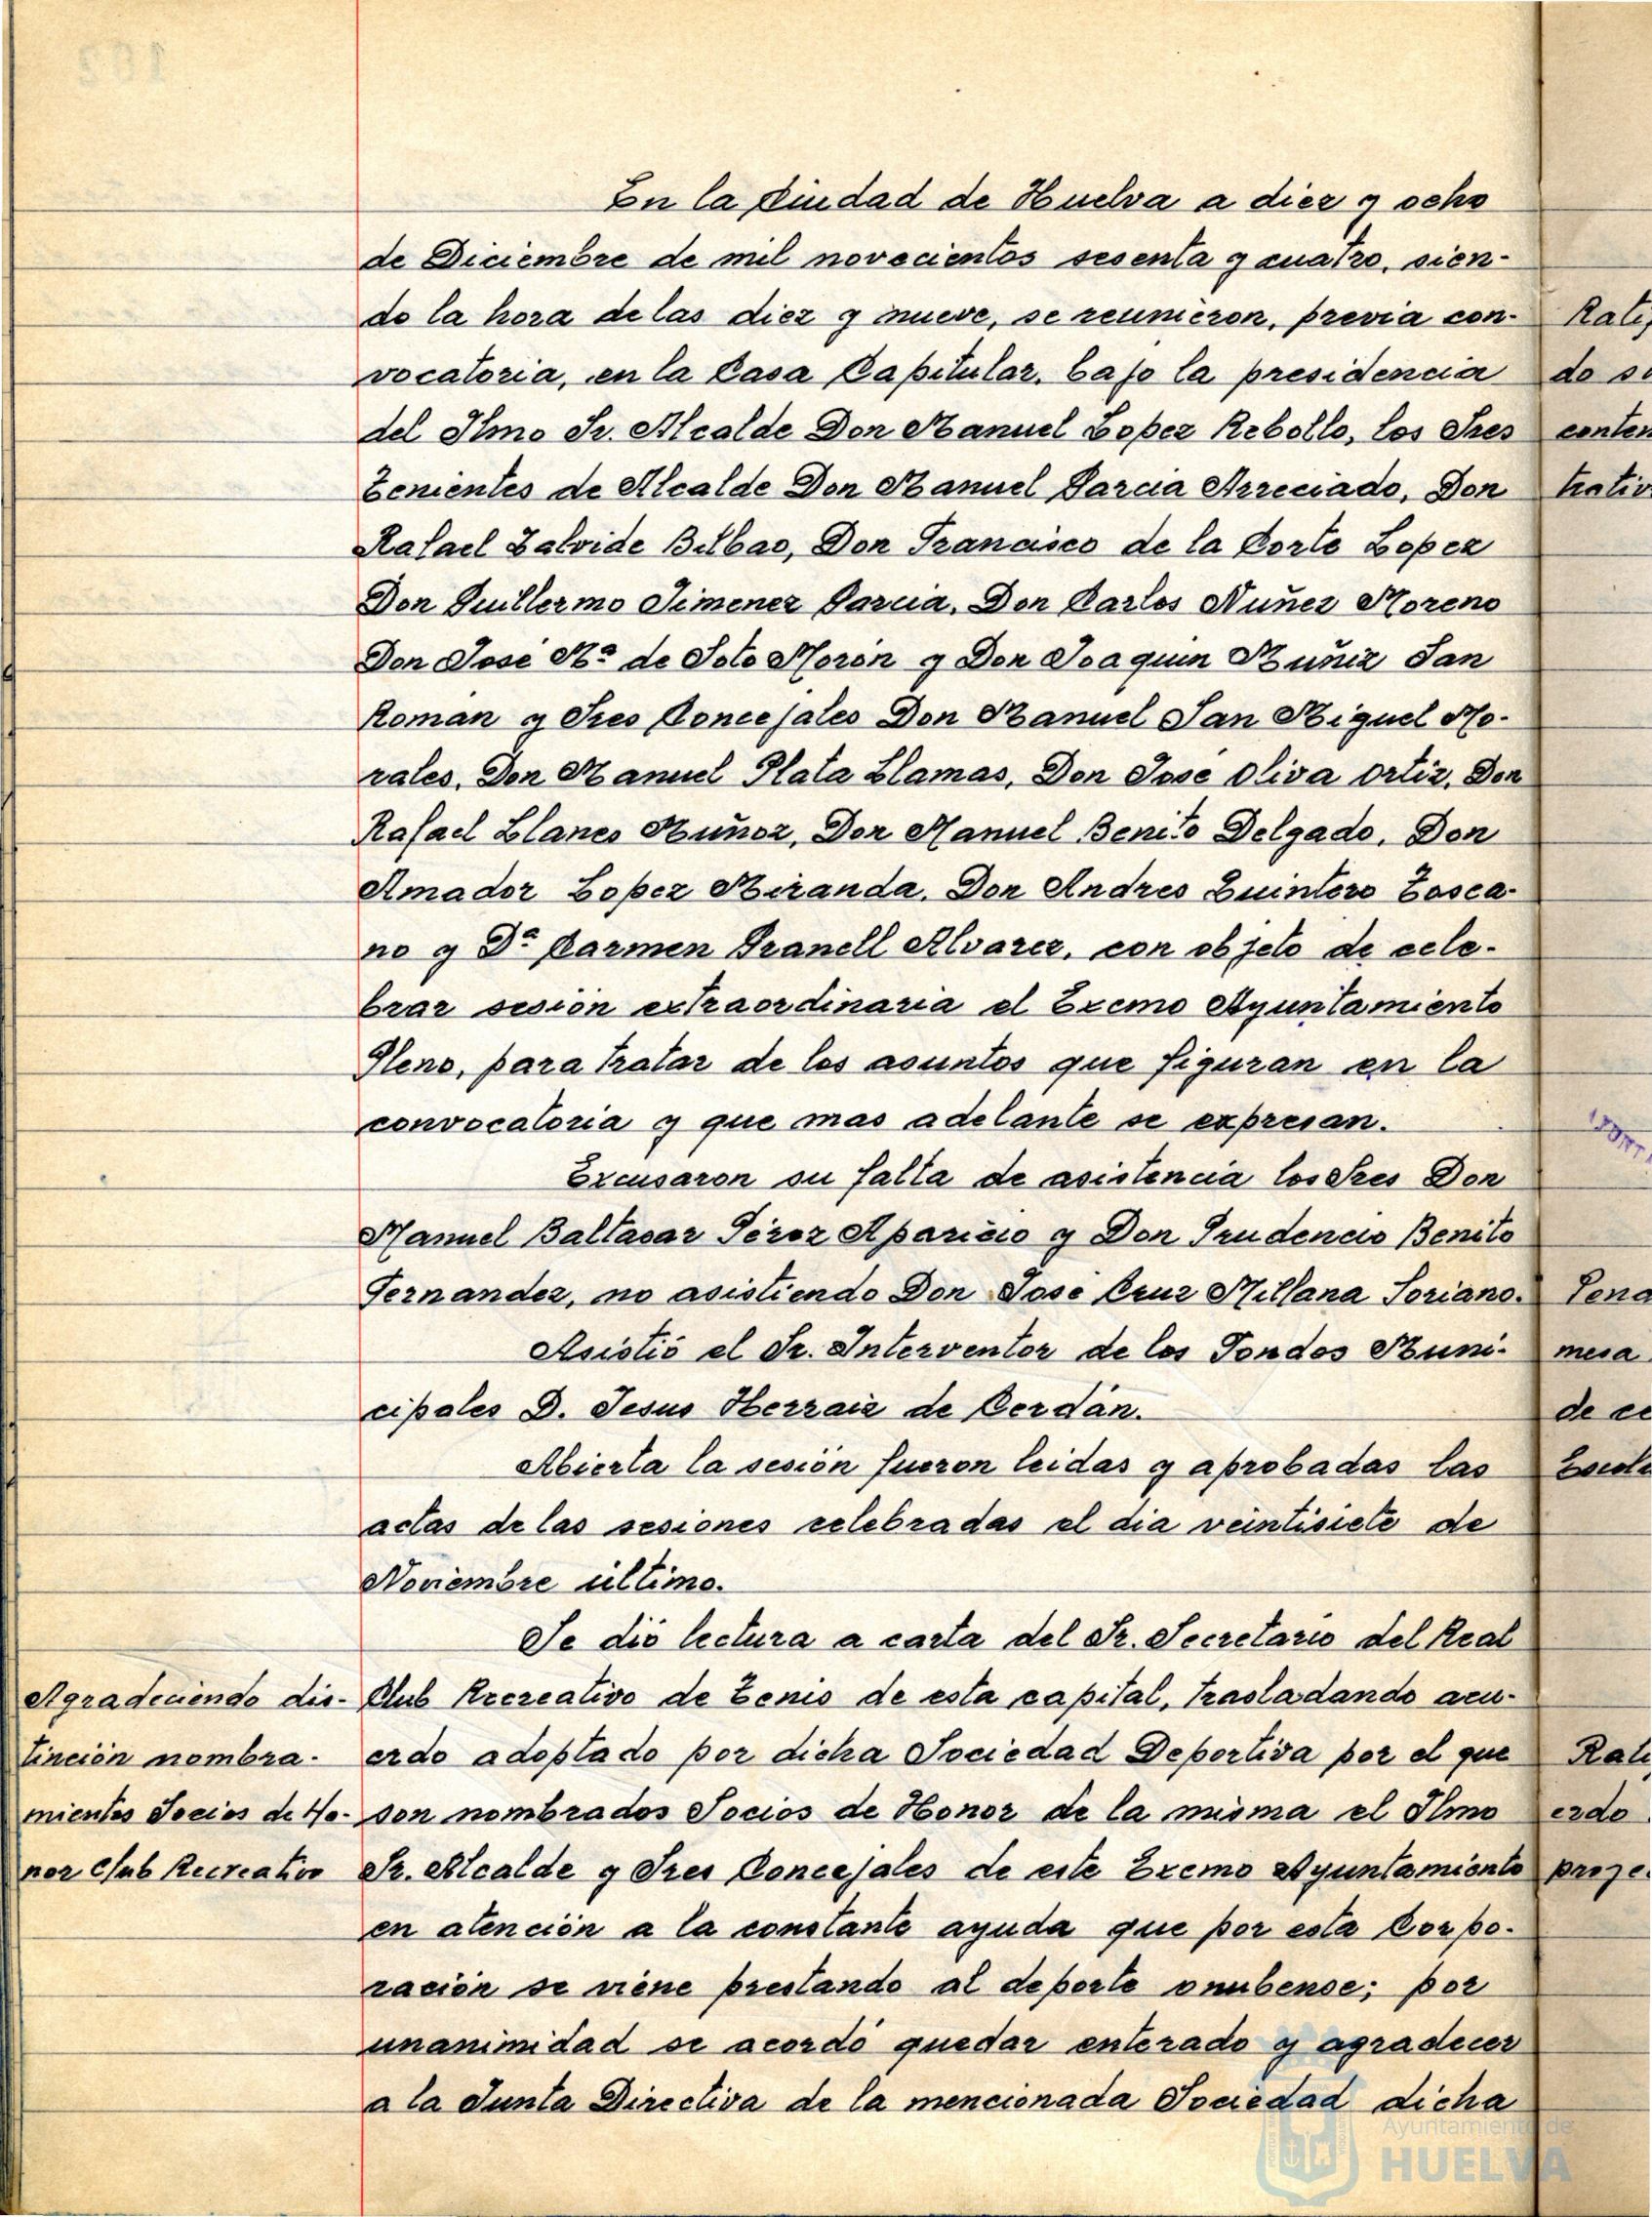 En la Ciudad de Huelva a diez y ocho
de Diciembre de mil novecientos sesenta y cuatro, sien-
do la hora de las diez y nueve, se reunieron, previa con-
vocatoria, en la Casa Capitular, bajo la presidencia
del Ilmo Sr. Alcalde Don Manuel Lopez Rebollo, los Sres
Tenientes de Alcalde Don Manuel Garcia Arreciado, Don
Rafael Zalvide Bilbao, Don Francisco de la Corte Lopez
Don Guillermo Jimenez Garcia, Don Carlos Nuñez Moreno
Don José Mª de Soto Morón y Don Joaquin Muñiz San
Roman y Sres Concejales Don Manuel San Miguel Mo-
rales, Don Manuel Plata Llamas, Don Jose Oliva Ortiz, Don
Rafael Llanes Muñoz, Don Manuel Benito Delgado, Don
Amador Lopez Miranda, Don Andres Quintero Tosca-
no y Dª Carmen Granell Alvarez, con objeto de cele-
brar sesión extraordinaria el Excmo Ayuntamiento
Pleno, para tratar de los asuntos que figuran en la
convocatoria y que mas adelante se expresan.
Excusaron su falta de asistencia los Sres Don
Manuel Baltasar Pérez Aparicio y Don Prudencio Benito
Fernandez, no asistiendo Don José Cruz Millana Soriano.
Asistió el Sr. Interventor de los Fondos Muni-
cipales D. Jesus Herraiz de Cerdán.
Abierta la sesión fueron leidas y aprobadas las
actas de las sesiones celebradas el dia veintisiete de
Noviembre último.
Se dió lectura a carta del Sr. Secretario del Real
Agradeciendo dis-
tinción nombra-
mientos Socios de Ho-
nor Club Recreativo
Club Recreativo de Tenis de esta capital, trasladando acu-
erdo adoptado por dicha Sociedad Deportiva por el que
son nombrados Socios de Honor de la misma el Ilmo
Sr. Alcalde y Sres Concejales de este Excmo Ayuntamiento
en atención a la constante ayuda que por esta Corpo-
ración se viene prestando al deporte onubense; por
unanimidad se acordó quedar enterado y agradecer
a la Junta Directiva de la mencionada Sociedad dicha
Ayuntamiento de
HUELVA